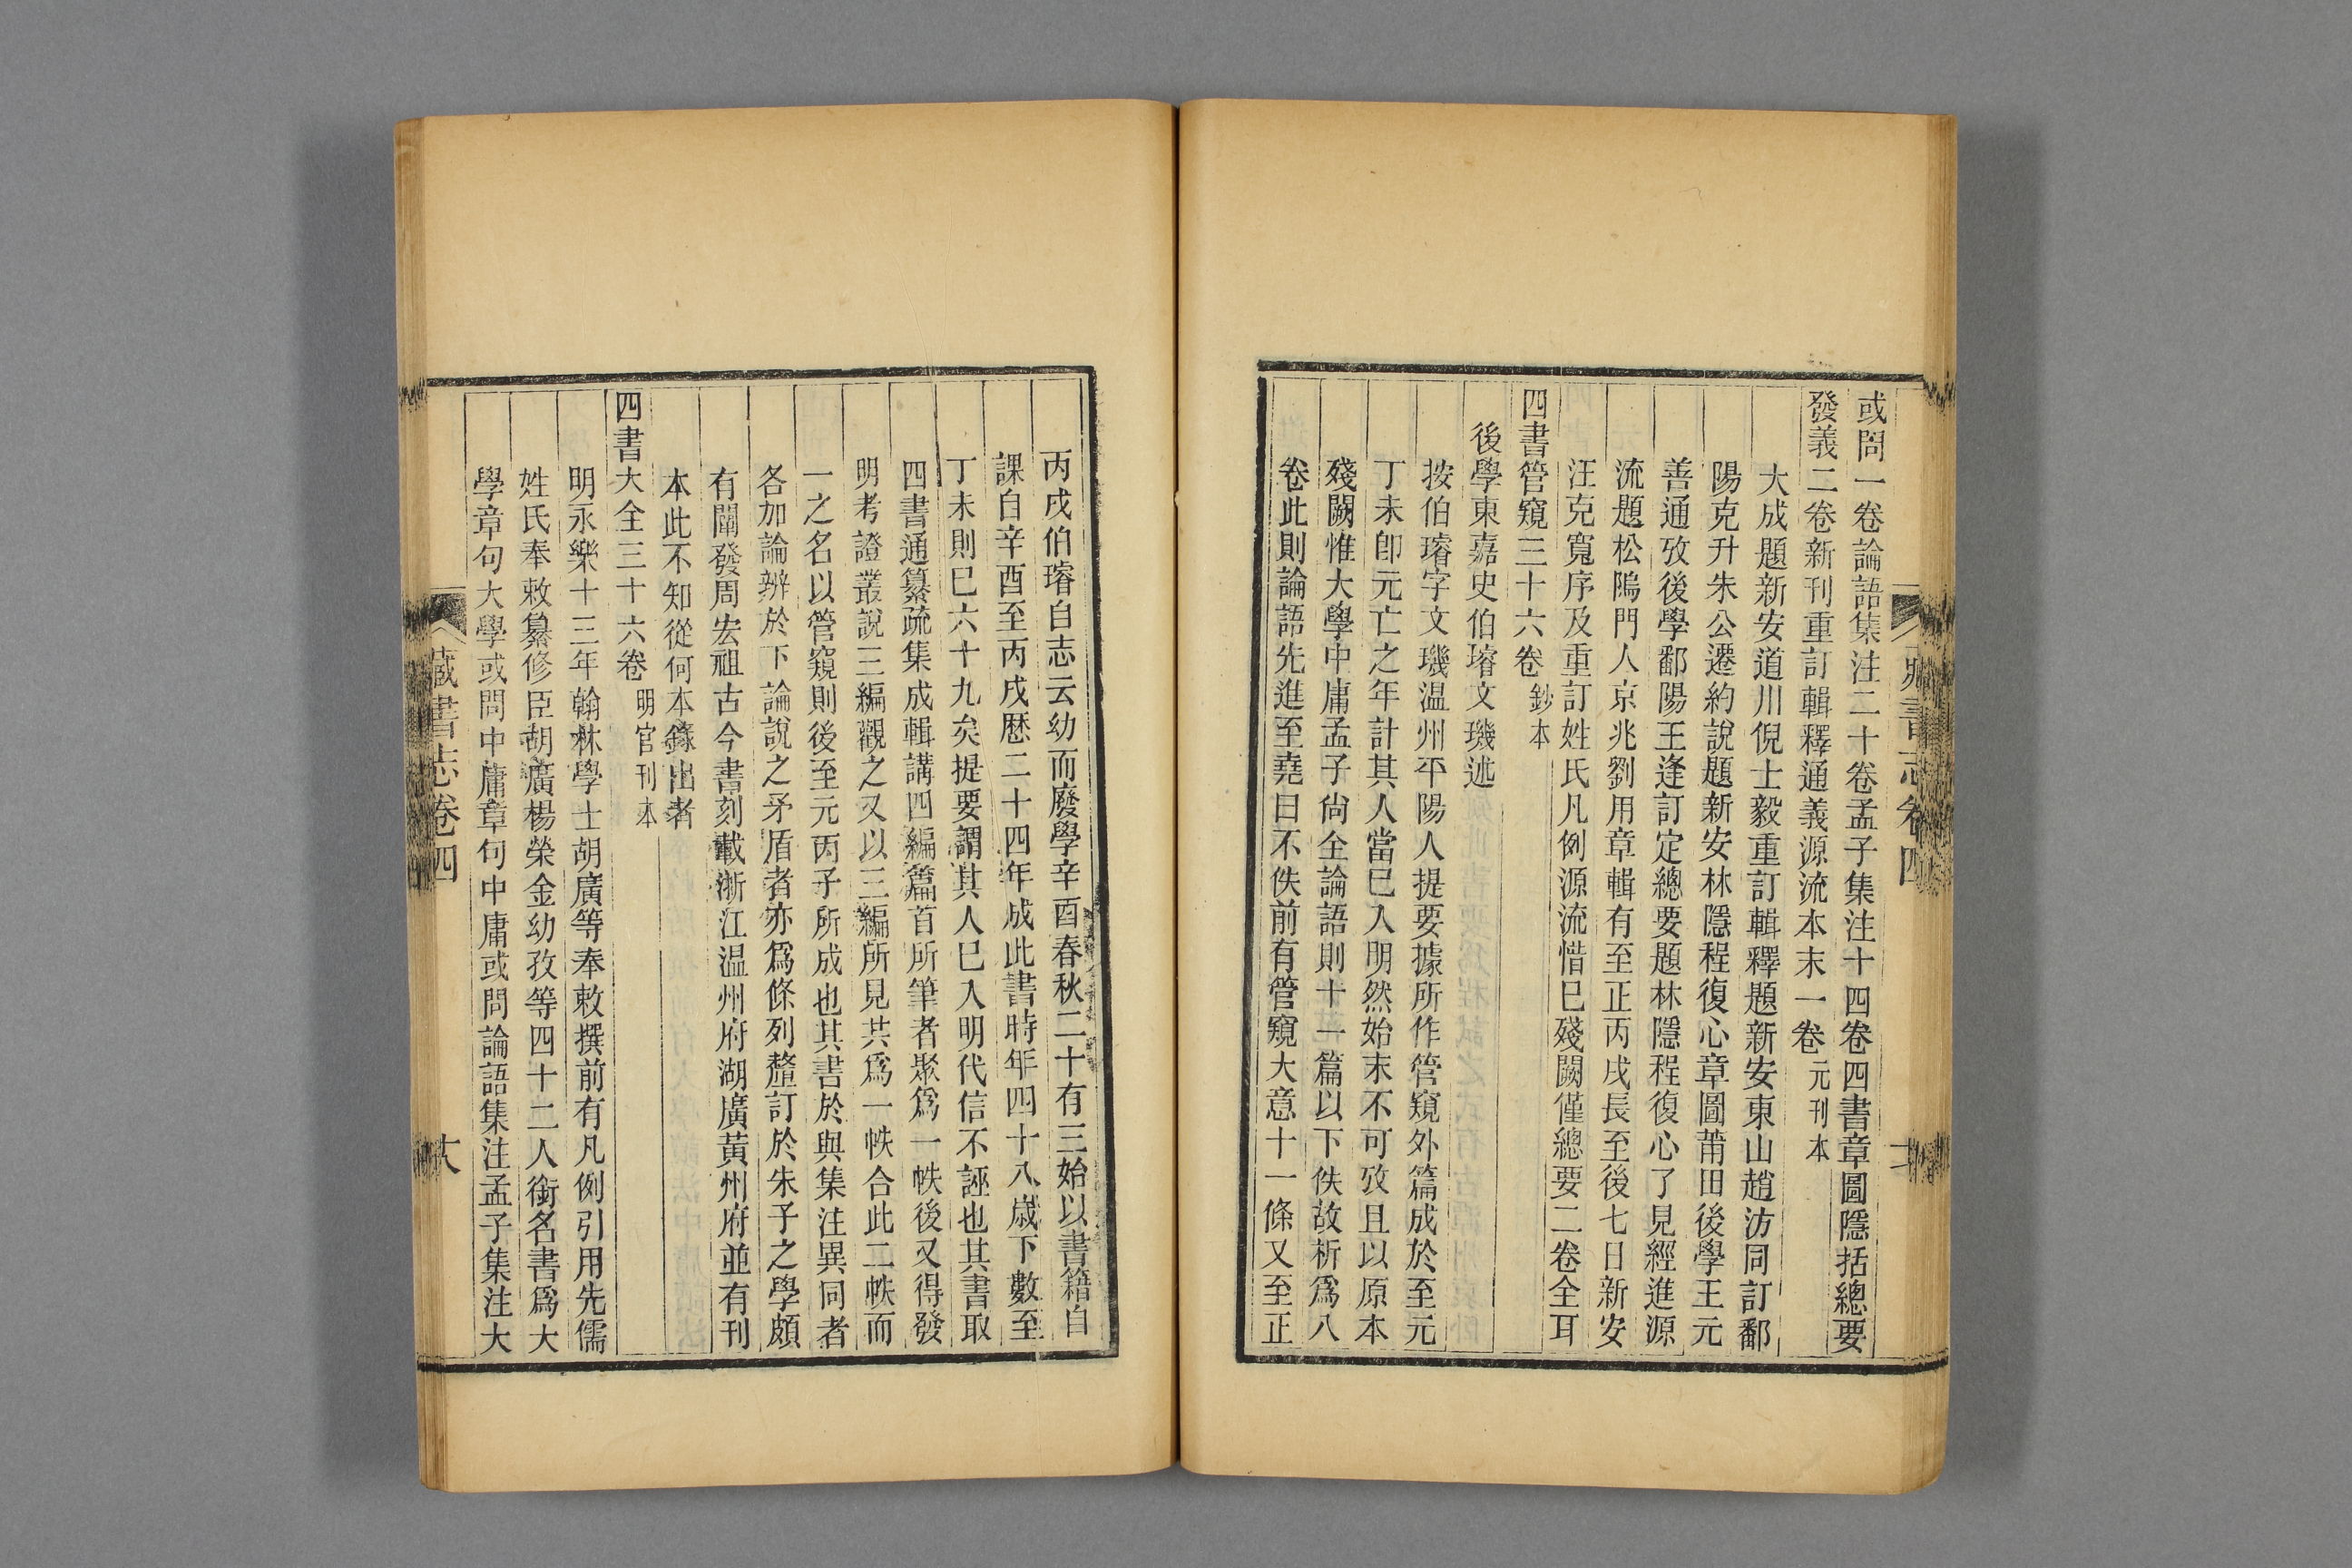 或問一卷論語集注二十卷孟子集注十四卷四書章圖隱括總要
發義二卷新刊重訂輯釋通義源流本末一卷元刊本
大成題新安道川倪士毅重訂輯釋題新安東山趙汸同訂鄱
陽克升朱公遷約說題新安林隱程復心章圖莆田後學王元
善通攷後學鄱陽王逢訂定總要題林隱程復心了見經進源
流題松隖門人京兆劉用章輯有至正丙戌長至後七日新安
汪克寬序及重訂姓氏凡例源流惜已殘闕僅總要二卷全耳
四書管窺三十六卷鈔本
後學東嘉史伯璿文璣述
按伯璿字文璣温州平陽人提要據所作管窺外篇成於至元
丁未卽元亡之年計其人當已入明然始末不可攷且以原本
殘闕惟大學中庸孟子尙全論語則十一篇以下佚故析爲八
卷此則論語先進至堯曰不佚前有管窺大意十一條又至正
丙戌伯璿自志云幼而廢學辛酉春秋二十有三始以書籍自
課自辛酉至丙戌歷二十四年成此書時年四十八歲下數至
丁未則已六十九矣提要謂其人已入明代信不誣也其書取
四書通纂疏集成輯講四編篇首所筆者聚爲一帙後又得發
明考證叢說三編觀之又以三編所見共爲一帙合此二帙而
一之名以管窺則後至元丙子所成也其書於與集注異同者
各加論辨於下論說之矛盾者亦爲條列釐訂於朱子之學頗
有闡發周宏祖古今書刻載浙江温州府湖廣黃州府並有刊
本此不知從何本錄出者
四書大全三十六卷明官刊本
明永樂十三年翰林學士胡廣等奉敕撰前有凡例引用先儒
姓氏奉敕纂修臣胡廣楊榮金幼孜等四十二人銜名書爲大
學章句大學或問中庸章句中庸或問論語集注孟子集注大
藏書志卷四
十八